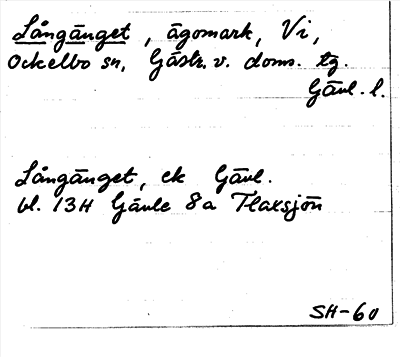 Långänget, ägomark, Vi,
Ockelbo sn, Gästr. v. doms. tg.
Gävl. l.
Långänget, ek Gävl.
bl. 13H Gävle 8a Flaksjön
SH-60